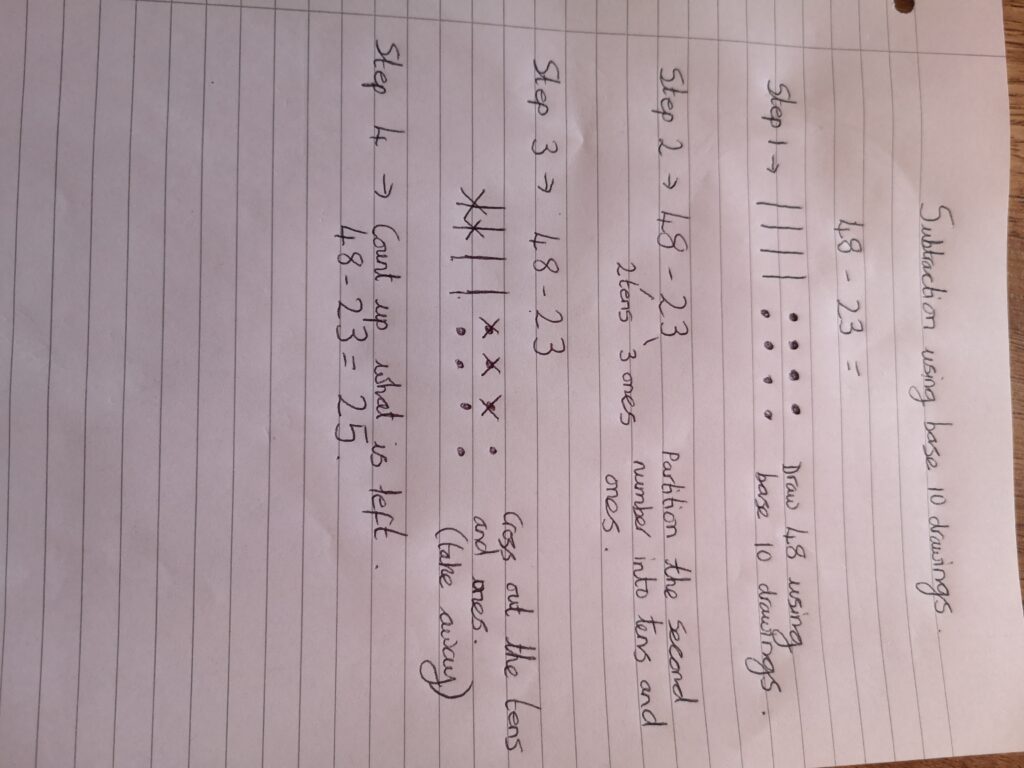 Subtraction using base 10 drawings.
48 - 23 =
Step 1 → Draw 48 using
base 10 drawings.
Step 2 → 48 - 23 Partition the second
2 tens 3 ones number into tens and
ones.
Step 3 → 48 - 23
Cross out the tens
and ones.
(take away)
Step 4 → Count up what is left.
48 - 23 = 25.